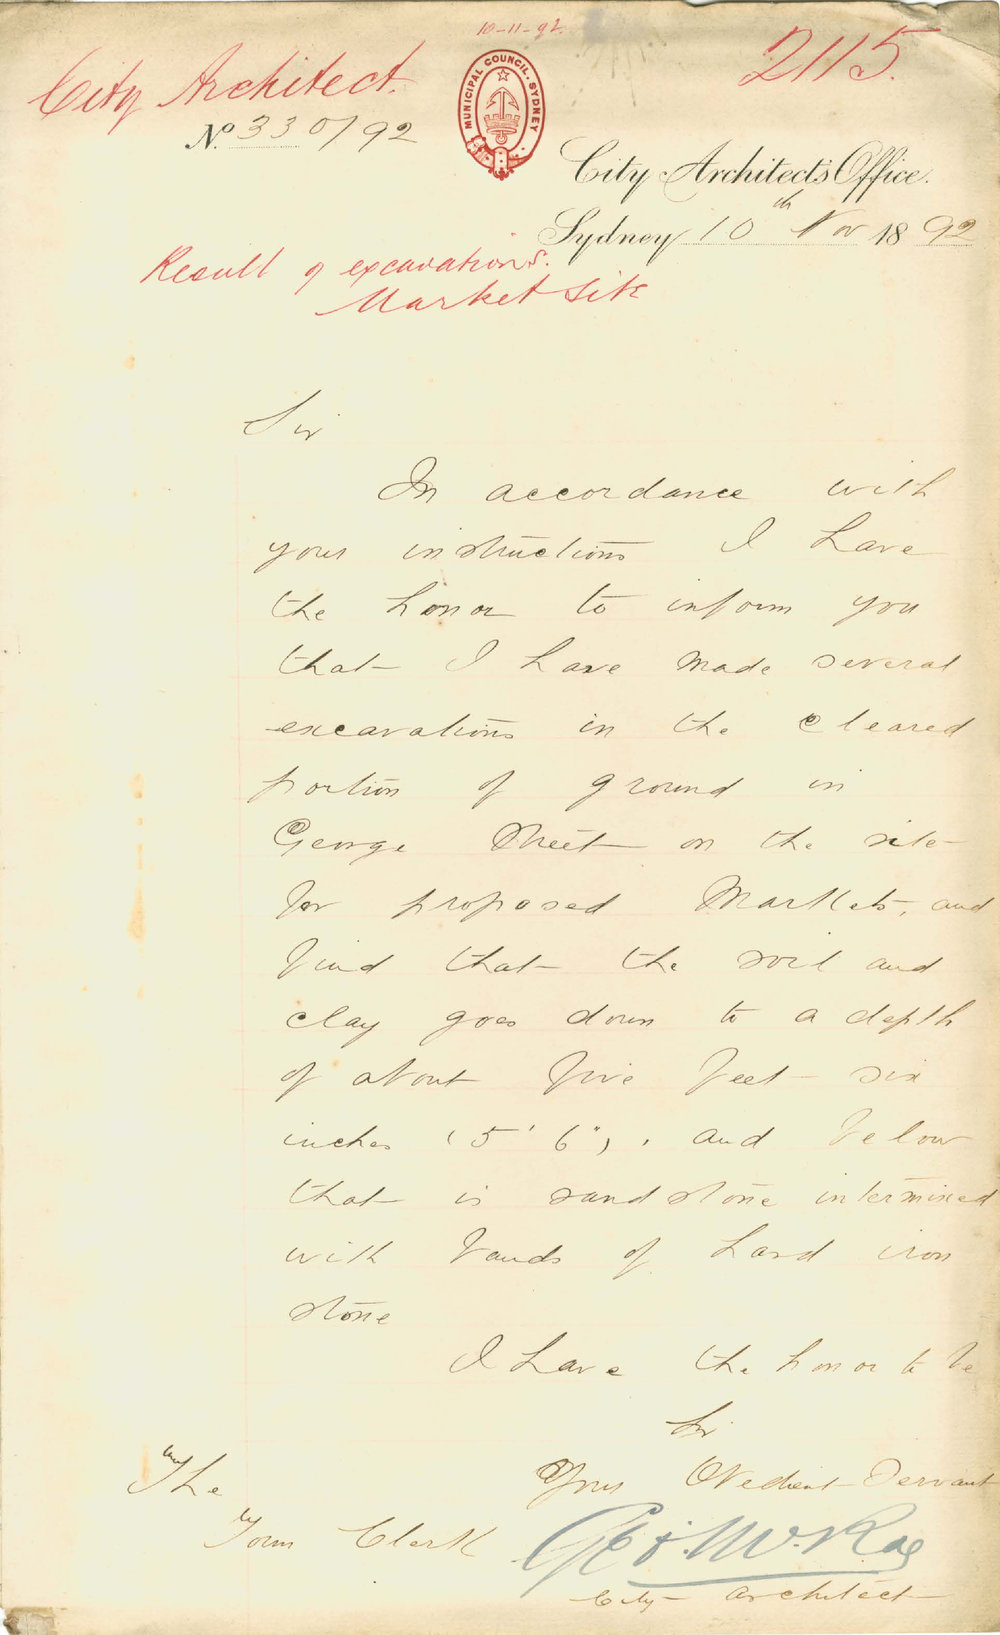 10-11-92.
City Architect.
2115.
MUNICIPAL COUNCIL. SYDNEY
No. 330/92
City Architect's Office.
Sydney 10th Nov 1892
Result of excavations.
Market Site
Sir
In accordance with
your instructions I have
the honor to inform you
that I have made several
excavations in the cleared
portion of ground in
George Street on the site
for proposed Markets, and
find that the soil and
clay goes down to a depth
of about five feet six
inches (5' 6"), and below
that is sandstone intermixed
with bands of hard iron
stone
I have the honor to be
Sir
Your Obedient Servant
The
Town Clerk
Geo. McRae
City Architect